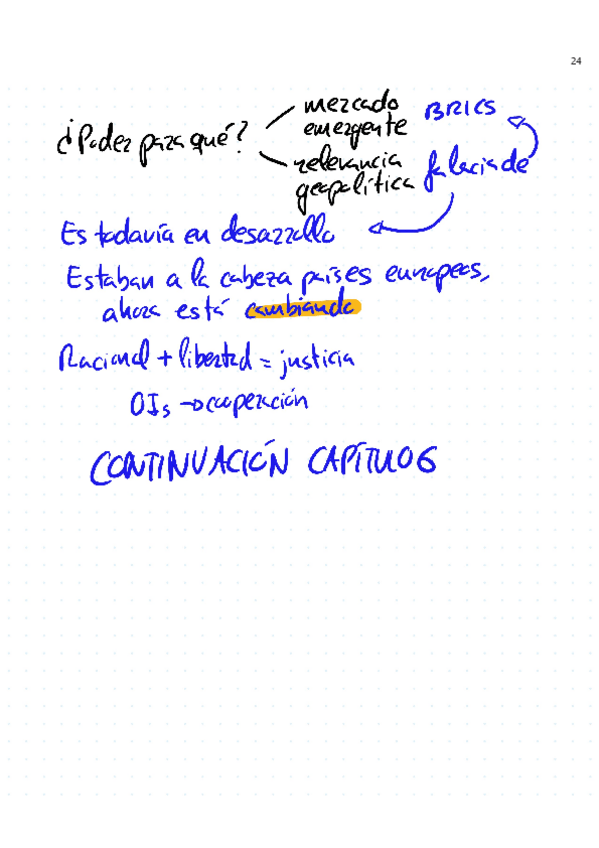 24
¿Poder para qué?
mercado
emergente
BRICS
relevancia
geopolítica
falacia de
Es todavía en desarrollo
Estaban a la cabeza países europeos,
ahora está cambiando
Racional + libertad = justicia
OIs → cooperación
CONTINUACIÓN CAPÍTULO 6